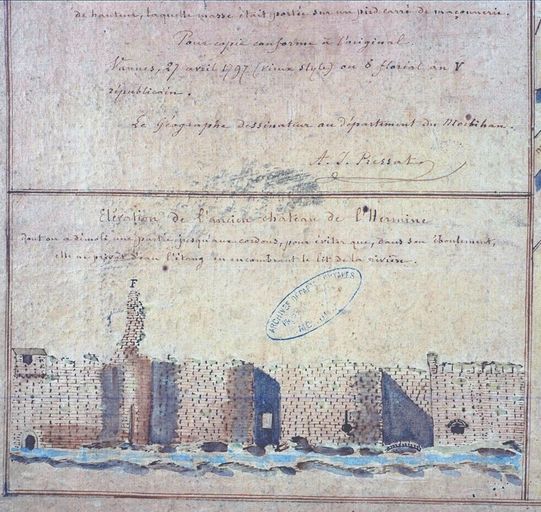 de hauteur, laquelle masse était portée sur un pied carré de maçonnerie.
Pour copie conforme à l'original.
Vannes, 27 avril 1797 (vieux style) ou 8 floréal an V
républicain.
Le Géographe dessinateur au département du Morbihan.
A. J.
Elévation de l'ancien château de l'Hermine
dont on a démoli une partie jusqu'aux cordons, pour éviter que, dans son éboulement,
elle ne privât d'eau l'étang en encombrant le lit de la rivière.
F
ARCHIVES